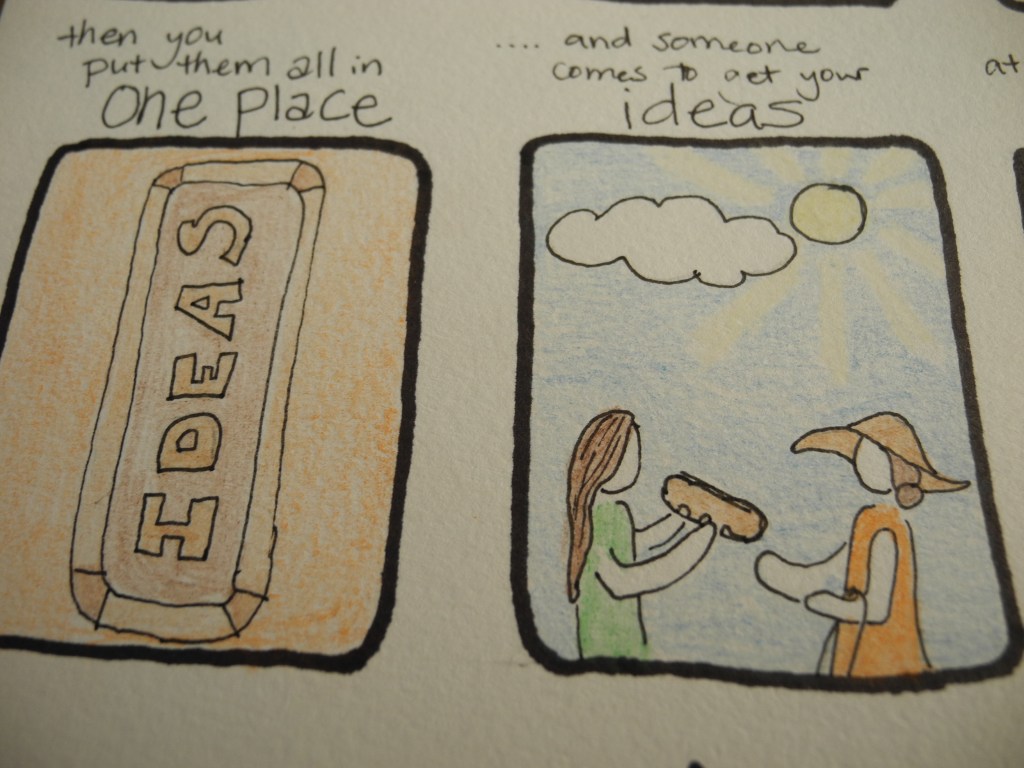 then you
put them all in
one place
IDEAS
.... and someone
comes to get your
ideas
at